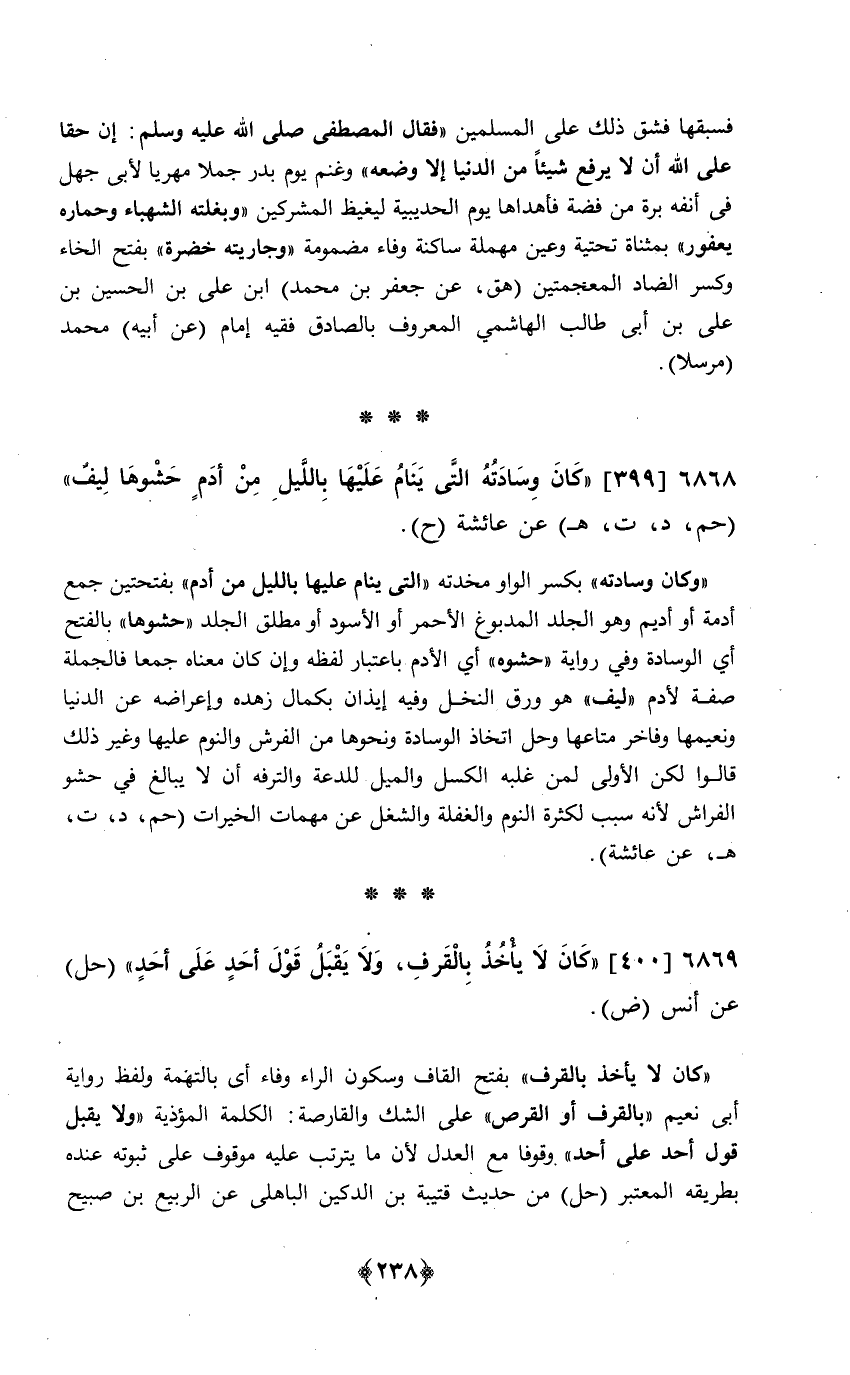 فسبقها فشق ذلك على المسلمين «فقال المصطفى صلى الله عليه وسلم: إن حقا
على الله أن لا يرفع شيئاً من الدنيا إلا وضعه» وغنم يوم بدر جملا مهريا لأبى جهل
فى أنفه برة من فضة فأهداها يوم الحديبية ليغيظ المشركين «وبغلته الشهباء وحماره
يعفور» بمثناة تحتية وعين مهملة ساكنة وفاء مضمومة «وجاريته خضرة» بفتح الخاء
وكسر الضاد المعجمتين (هق، عن جعفر بن محمد) ابن على بن الحسين بن
على بن أبى طالب الهاشمي المعروف بالصادق فقيه إمام (عن أبيه) محمد
(مرسلا).
* * *
٦٨٦٨ [٣٩٩] «كَانَ وِسَادَتُهُ التَّى يَنَامُ عَلَيْهَا بِاللَّيلِ مِنْ أدَمٍ حَشْوهَا لِيفٌ»
(حم، د، ت، هـ) عن عائشة (ح).
«وكان وسادته» بكسر الواو مخدته «التى ينام عليها بالليل من أدم» بفتحتين جمع
أدمة أو أديم وهو الجلد المدبوغ الأحمر أو الأسود أو مطلق الجلد «حشوها» بالفتح
أي الوسادة وفي رواية «حشوه» أي الأدم باعتبار لفظه وإن كان معناه جمعا فالجملة
صفة لأدم «ليف» هو ورق النخل وفيه إيذان بكمال زهده وإعراضه عن الدنيا
ونعيمها وفاخر متاعها وحل اتخاذ الوسادة ونحوها من الفرش والنوم عليها وغير ذلك
قالوا لكن الأولى لمن غلبه الكسل والميل للدعة والترفه أن لا يبالغ في حشو
الفراش لأنه سبب لكثرة النوم والغفلة والشغل عن مهمات الخيرات (حم، د، ت،
هـ، عن عائشة).
* * *
٦٨٦٩ [٤٠٠] «كَانَ لَا يأْخُذُ بِالْقَرفِ، وَلَا يَقْبَلُ قَوْلَ أحَدٍ عَلَى أحَدٍ» (حل)
عن أنس (ض).
«كان لا يأخذ بالقرف» بفتح القاف وسكون الراء وفاء أى بالتهمة ولفظ رواية
أبى نعيم «بالقرف أو القرص» على الشك والقارصة: الكلمة المؤذية «ولا يقبل
قول أحد على أحد» وقوفا مع العدل لأن ما يترتب عليه موقوف على ثبوته عنده
بطريقه المعتبر (حل) من حديث قتيبة بن الدكين الباهلى عن الربيع بن صبيح
﴿٢٣٨﴾